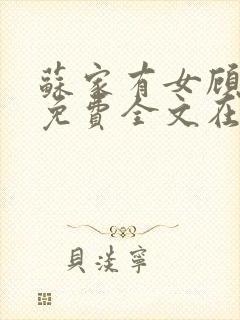 蘇家有女顾
免費全文在
貝淡寧